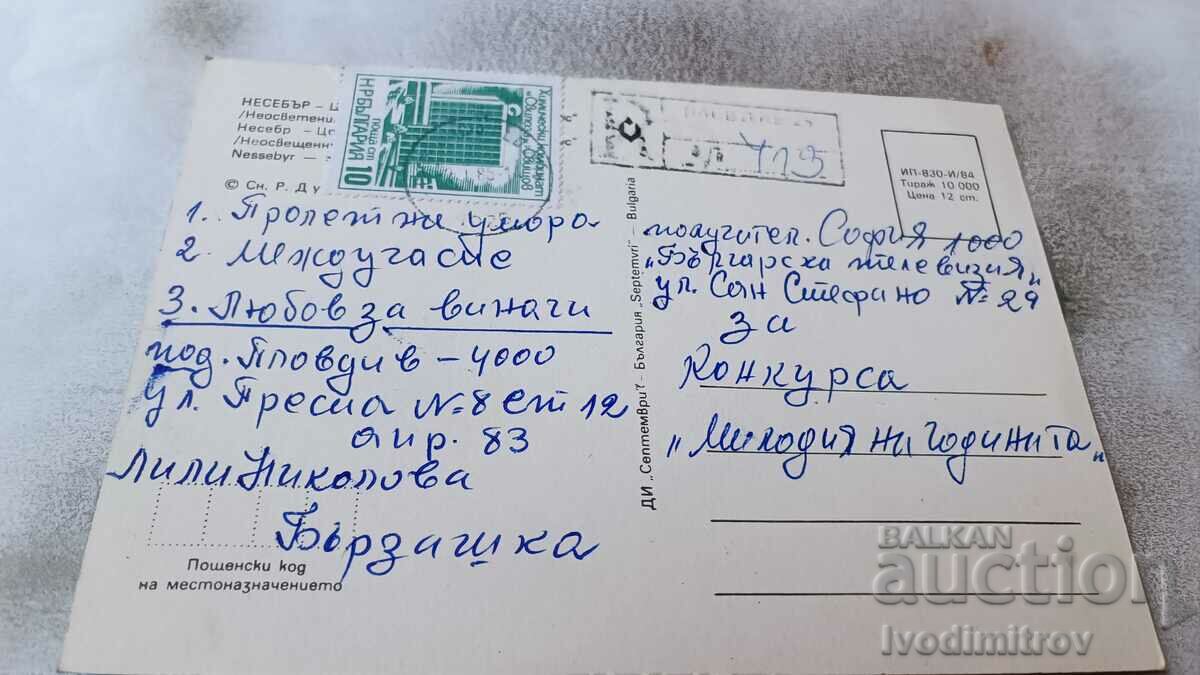 НЕСЕБЪР –
/Неосветени
Несебр –
/Неосвещенн
Nessebyr –
© Сн. Р. Ду
НР БЪЛГАРИЯ
поща ст.
10
Свищов
713
ИП-830-И/84
Тираж 10 000
Цена 12 ст.
1. Пролетни умора
2. Междучасие
3. Любов за винаги
под. Пловдив – 4000
ул. Преспа №8 ет 12
апр. 83
Лили Николова
Бързашка
Пощенски код
на местоназначението
ДИ „Септември" - България „Septemvri" - Bulgaria
получител. София 1000
„Българска телевизия"
ул. Сан Стефано № 29
за
Конкурса
„Мелодия на годината"
BALKAN
auction
Ivodimitrov